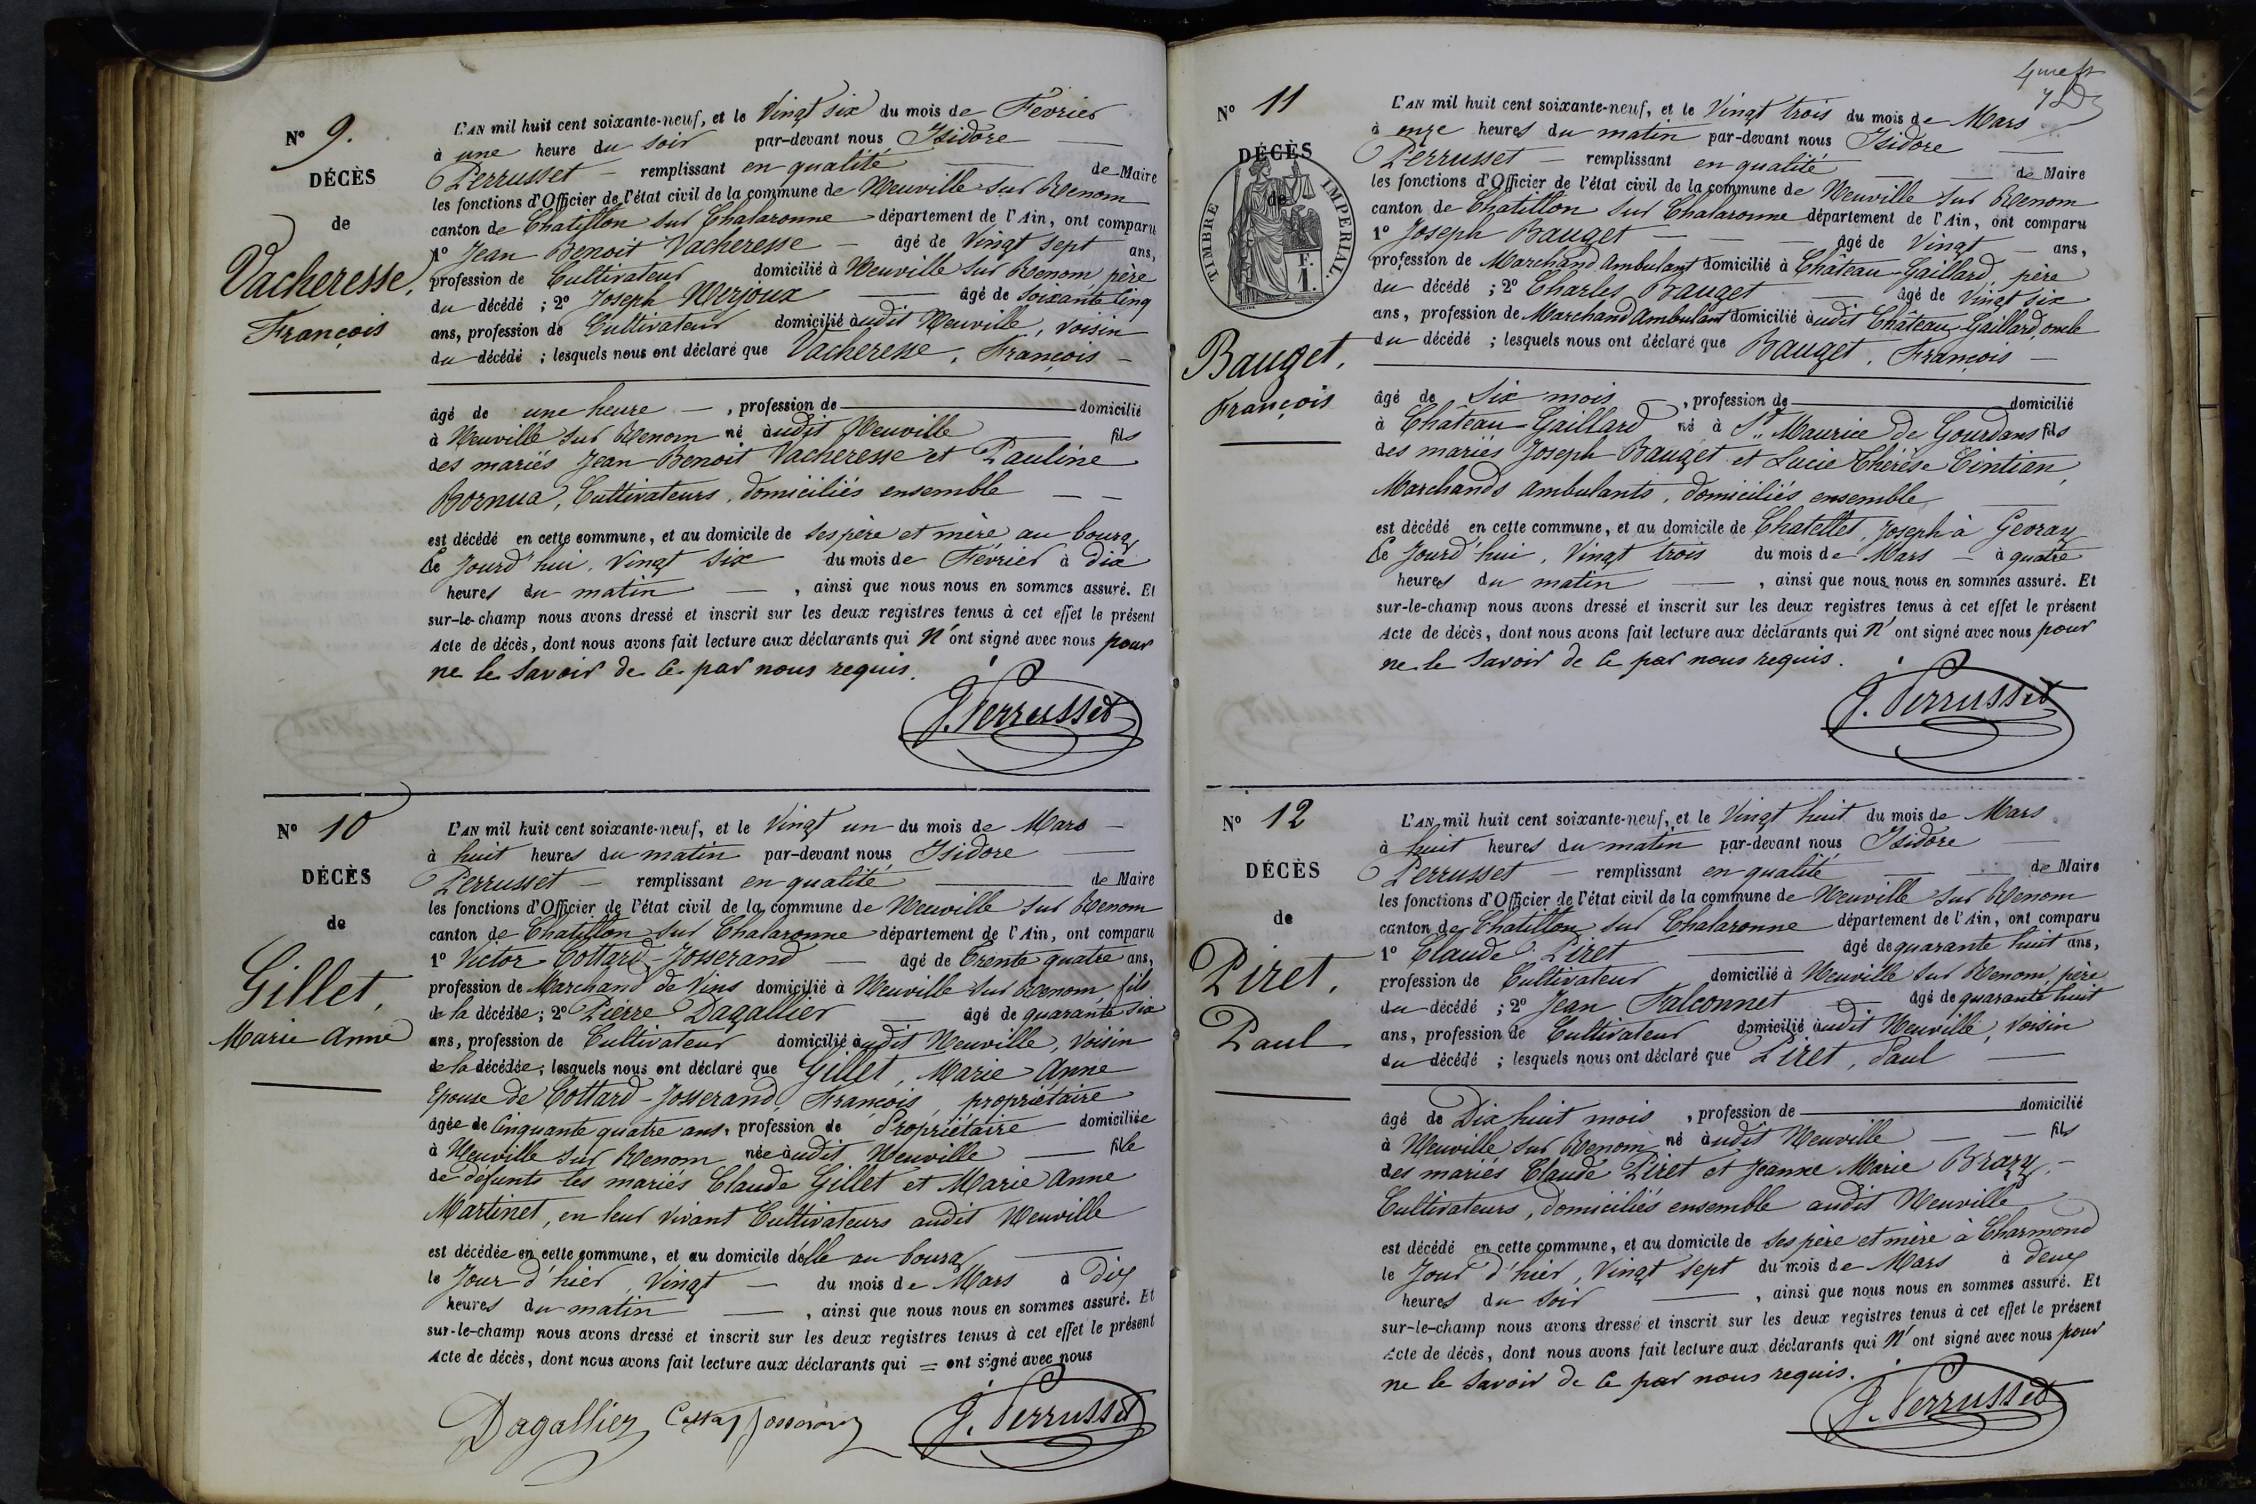 N° 9.
DÉCÈS
de
Vacheresse,
François
L'AN mil huit cent soixante-neuf, et le Vingt six du mois de Fevrier
à une heure du soir par-devant nous Isidore
Perrusset remplissant en qualité de Maire
les fonctions d'Officier de l'état civil de la commune de Neuville sur Renom
canton de Chatillon sur Chalaronne département de l'Ain, ont comparu
1° Jean Benoit Vacheresse âgé de Vingt sept ans,
profession de Cultivateur domicilié à Neuville sur Renom, père
du décédé ; 2° Joseph Merjoux âgé de soixante cinq
ans, profession de Cultivateur domicilié audit Neuville, voisin
du décédé ; lesquels nous ont déclaré que Vacheresse, François
âgé de une heure , profession de domicilié
à Neuville sur Renom né audit Neuville fils
des mariés Jean Benoit Vacheresse et Pauline
Bornua, Cultivateurs, domiciliés ensemble
est décédé en cette commune, et au domicile de ses père et mère au bourg
le Jourd'hui, Vingt six du mois de Février à dix
heures du matin , ainsi que nous nous en sommes assuré. Et
sur-le-champ nous avons dressé et inscrit sur les deux registres tenus à cet effet le présent
Acte de décès, dont nous avons fait lecture aux déclarants qui n'ont signé avec nous pour
ne le savoir de ce par nous requis.
J. Perrusset
N° 10
DÉCÈS
de
Gillet,
Marie Anne
L'AN mil huit cent soixante-neuf, et le Vingt un du mois de Mars
à huit heures du matin par-devant nous Isidore
Perrusset remplissant en qualité de Maire
les fonctions d'Officier de l'état civil de la commune de Neuville sur Renom
canton de Chatillon sur Chalaronne département de l'Ain, ont comparu
1° Victor Cottard-Josserand âgé de Trente quatre ans,
profession de Marchand de Vins domicilié à Neuville sur Renom, fils
de la décédée; 2° Pierre Dagallier âgé de quarante six
ans, profession de Cultivateur domicilié audit Neuville, voisin
de la décédée; lesquels nous ont déclaré que Gillet, Marie Anne
Epouse de Cottard-Josserand, François, propriétaire
âgée de Cinquante quatre ans, profession de Propriétaire domiciliée
à Neuville sur Renom née audit Neuville fille
de défunts les mariés Claude Gillet et Marie Anne
Martinet, en leur vivant Cultivateurs audit Neuville
est décédée en cette commune, et au domicile d'elle au bourg
le Jour d'hier, Vingt du mois de Mars à dix
heures du matin , ainsi que nous nous en sommes assuré. Et
sur-le-champ nous avons dressé et inscrit sur les deux registres tenus à cet effet le présent
Acte de décès, dont nous avons fait lecture aux déclarants qui = ont signé avec nous
Dagallier Cottard Josserand J. Perrusset
N° 11
DÉCÈS
de
TIMBRE IMPERIAL.
F.
1.
Bauget,
François
L'AN mil huit cent soixante-neuf, et le Vingt trois du mois de Mars
à onze heures du matin par-devant nous Isidore
Perrusset remplissant en qualité de Maire
les fonctions d'Officier de l'état civil de la commune de Neuville sur Renom
canton de Chatillon sur Chalaronne département de l'Ain, ont comparu
1° Joseph Bauget âgé de Vingt ans,
profession de Marchand Ambulant domicilié à Château-Gaillard, père
du décédé ; 2° Charles Bauget âgé de Vingt six
ans, profession de Marchand Ambulant domicilié audit Château-Gaillard, oncle
du décédé ; lesquels nous ont déclaré que Bauget, François
âgé de Six mois , profession de domicilié
à Château-Gaillard né à St Maurice de Gourdans fils
des mariés Joseph Bauget et Lucie Thérèse Tintian,
Marchands Ambulants, domiciliés ensemble
est décédé en cette commune, et au domicile de Chatellet, Joseph à Georay
le Jourd'hui, Vingt trois du mois de Mars à quatre
heures du matin , ainsi que nous nous en sommes assuré. Et
sur-le-champ nous avons dressé et inscrit sur les deux registres tenus à cet effet le présent
Acte de décès, dont nous avons fait lecture aux déclarants qui n'ont signé avec nous pour
ne le savoir de ce par nous requis.
J. Perrusset
N° 12
DÉCÈS
de
Piret,
Paul
L'AN mil huit cent soixante-neuf, et le Vingt huit du mois de Mars
à huit heures du matin par-devant nous Isidore
Perrusset remplissant en qualité de Maire
les fonctions d'Officier de l'état civil de la commune de Neuville sur Renom
canton de Chatillon sur Chalaronne département de l'Ain, ont comparu
1° Claude Piret âgé de quarante huit ans,
profession de Cultivateur domicilié à Neuville sur Renom, père
du décédé ; 2° Jean Falconnet âgé de quarante huit
ans, profession de Cultivateur domicilié audit Neuville, voisin
du décédé ; lesquels nous ont déclaré que Piret, Paul
âgé de Dix huit mois , profession de domicilié
à Neuville sur Renom né audit Neuville fils
des mariés Claude Piret et Jeanne Marie Brazy,
Cultivateurs, domiciliés ensemble audit Neuville
est décédé en cette commune, et au domicile de ses père et mère à Charmond
le Jour d'hier, Vingt sept du mois de Mars à deux
heures du soir , ainsi que nous nous en sommes assuré. Et
sur-le-champ nous avons dressé et inscrit sur les deux registres tenus à cet effet le présent
Acte de décès, dont nous avons fait lecture aux déclarants qui n'ont signé avec nous pour
ne le savoir de ce par nous requis.
J. Perrusset